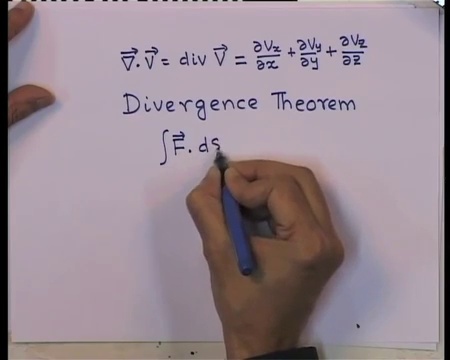 ∇⃗.V⃗ = div V⃗ = ∂Vx/∂x + ∂Vy/∂y + ∂Vz/∂z
Divergence Theorem
∫F⃗. ds